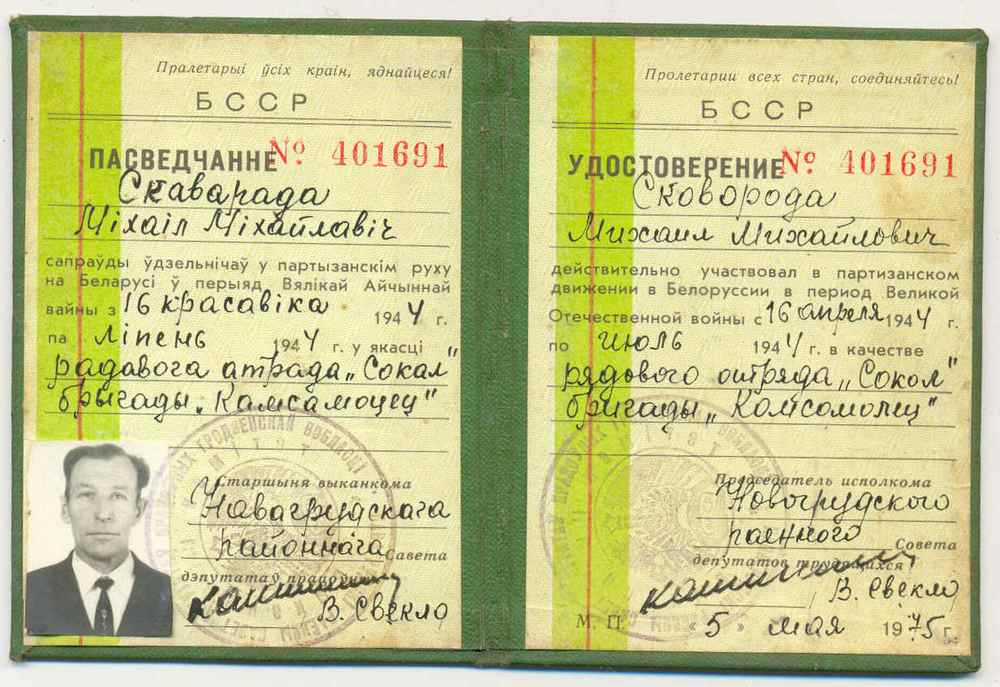 Пралетарыі ўсіх краін, яднайцеся!
БССР
ПАСВЕДЧАННЕ № 401691
Скаварада
Міхаіл Міхайлавіч
сапраўды ўдзельнічаў у партызанскім руху
на Беларусі ў перыяд Вялікай Айчыннай
вайны з 16 красавіка 1944 г.
па ліпень 1944 г. у якасці
радавога атрада „Сокал"
брыгады „Камсамолец"
Старшыня выканкома
Навагрудскага
районнага Савета
дэпутатаў працоўных
В. Свекло
Пролетарии всех стран, соединяйтесь!
БССР
УДОСТОВЕРЕНИЕ № 401691
Сковорода
Михаил Михайлович
действительно участвовал в партизанском
движении в Белоруссии в период Великой
Отечественной войны с 16 апреля 1944 г.
по июль 1944 г. в качестве
рядового отряда „Сокол"
бригады „Комсомолец"
Председатель исполкома
Новогрудского
районного Совета
депутатов трудящихся
В. Свекло
М. П. «5» мая 1975 г.